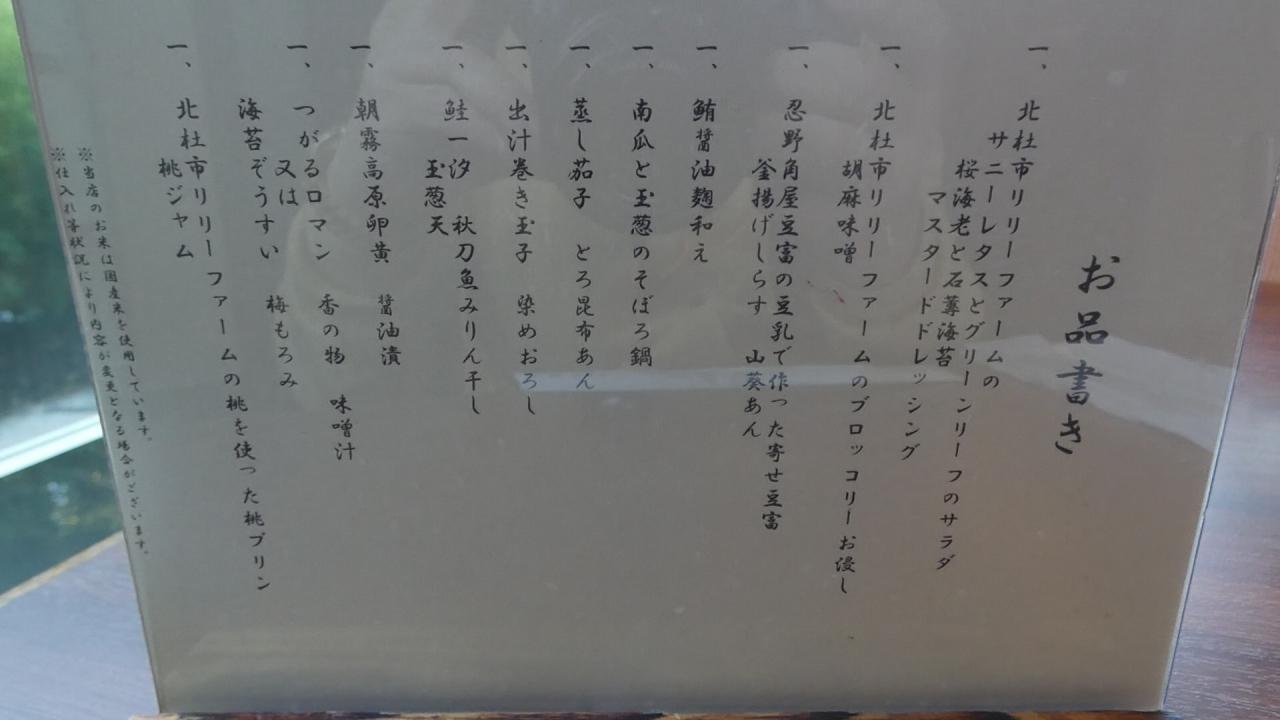 お品書き
一、北杜市リリーファームの
サニーレタスとグリーンリーフのサラダ
桜海老と石蓴海苔
マスタードドレッシング
一、北杜市リリーファームのブロッコリーお浸し
胡麻味噌
一、忍野角屋豆富の豆乳で作った寄せ豆富
釜揚げしらす 山葵あん
一、鮪醤油麹和え
一、南瓜と玉葱のそぼろ鍋
一、蒸し茄子 とろ昆布あん
一、出汁巻き玉子 染めおろし
一、鮭一汐 秋刀魚みりん干し
玉葱天
一、朝霧高原卵黄 醤油漬
一、つがるロマン 香の物 味噌汁
又は
海苔ぞうすい 梅もろみ
一、北杜市リリーファームの桃を使った桃プリン
桃ジャム
※当店のお米は国産米を使用しています。
※仕入れ等状況により内容が変更となる場合がございます。